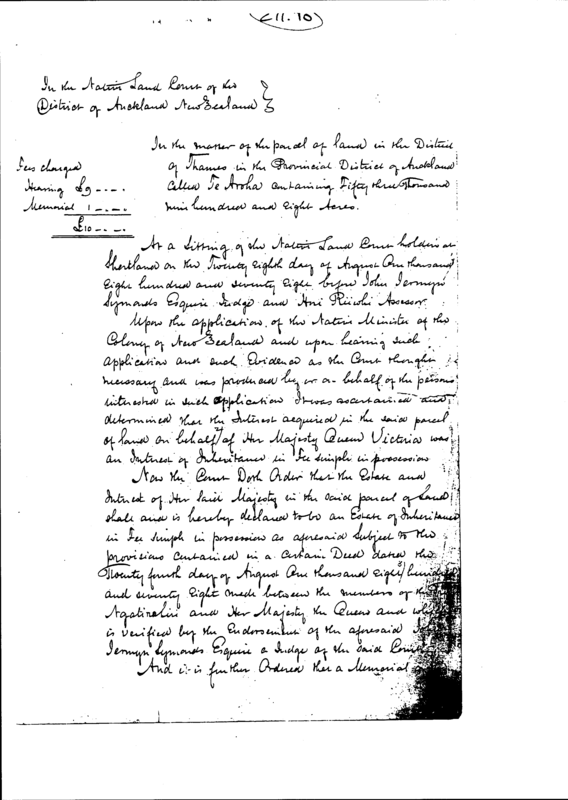 E11.10
In the Native Land Court of the
District of Auckland New Zealand
In the matter of the parcel of land in the District
of Thames in the Provincial District of Auckland
called Te Aroha containing Fifty three thousand
nine hundred and eight Acres.
Fees charged
Hearing £9 -.-.
Memorial 1 -.-.
£10 -.-.
At a Sitting of the Native Land Court holden at
Shortland on the Twenty Eighth day of August One thousand
Eight hundred and seventy Eight before John Jermyn
Symonds Esquire Judge and Assessor
Upon the application of the Native Minister of the
Colony of New Zealand and upon hearing such
application and such Evidence as the Court thought
necessary and was produced by or on behalf of the persons
interested in such application It was ascertained and
determined that the Interest acquired in the said parcel
of land on behalf of Her Majesty Queen Victoria was
an Interest of Inheritance in Fee simple in possession
Now the Court Doth Order that the Estate and
Interest of Her said Majesty in the said parcel of Land
shall and is hereby declared to be an Estate of Inheritance
in Fee simple in possession as aforesaid Subject to the
provisions contained in a certain Deed dated the
Twenty fourth day of August One thousand Eight hundred
and seventy Eight made between the members of the
and Her Majesty the Queen and
is verified by the Endorsement of the aforesaid
Jermyn Symonds Esquire a Judge of the said Court
And it is further Ordered that a Memorial